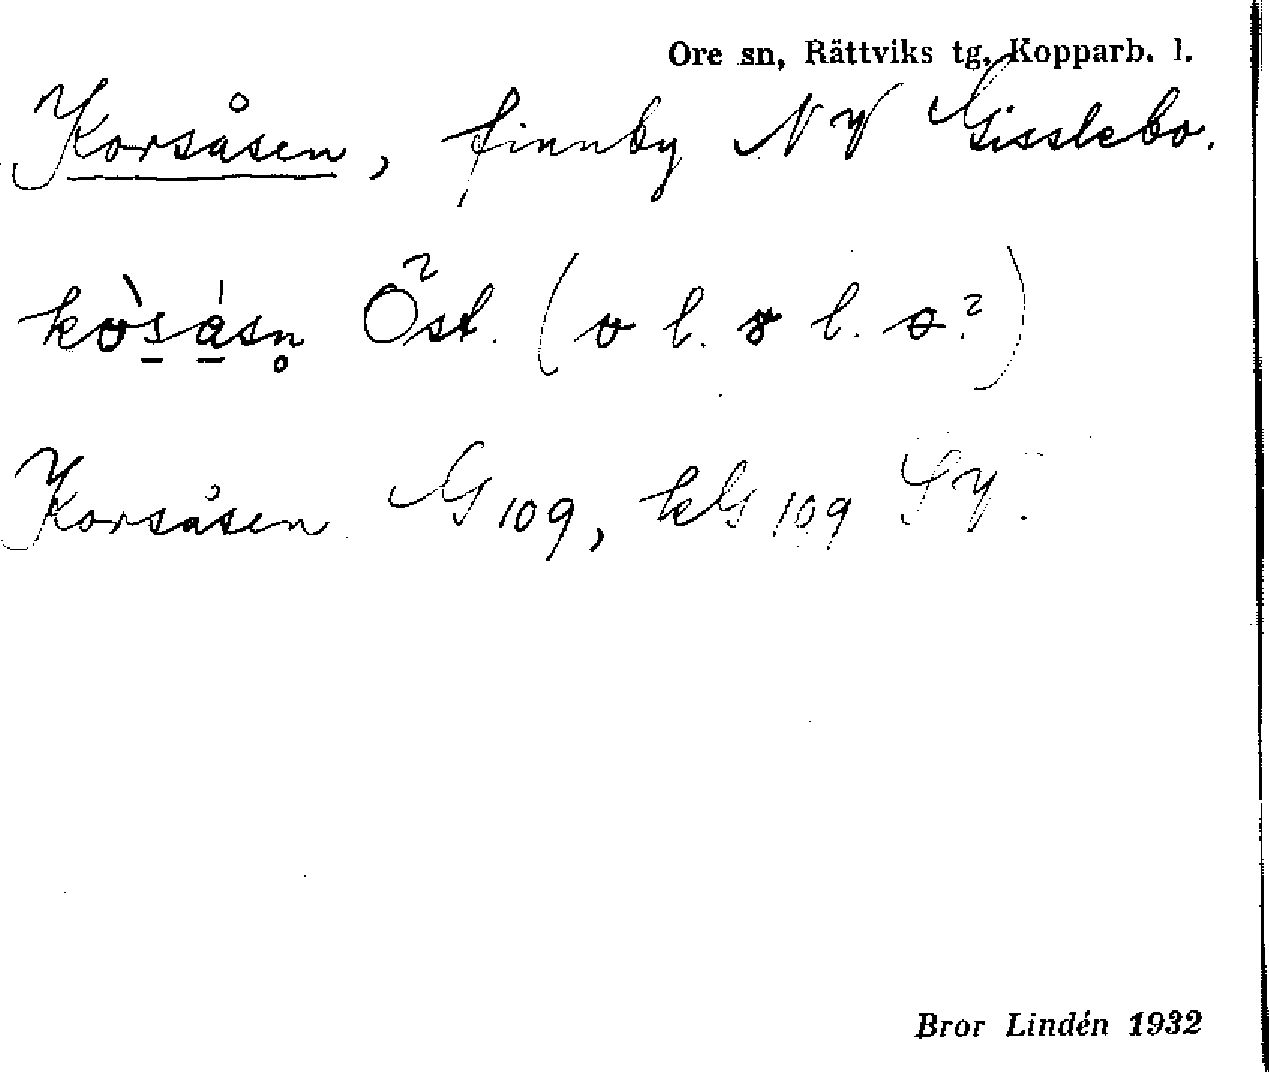 Ore sn, Rättviks tg, Kopparb. l.
Korsåsen, finnby NV Gisslebo.
Öst. ( l. l. ?)
Korsåsen G 109, kG 109 SV.
Bror Lindén 1932